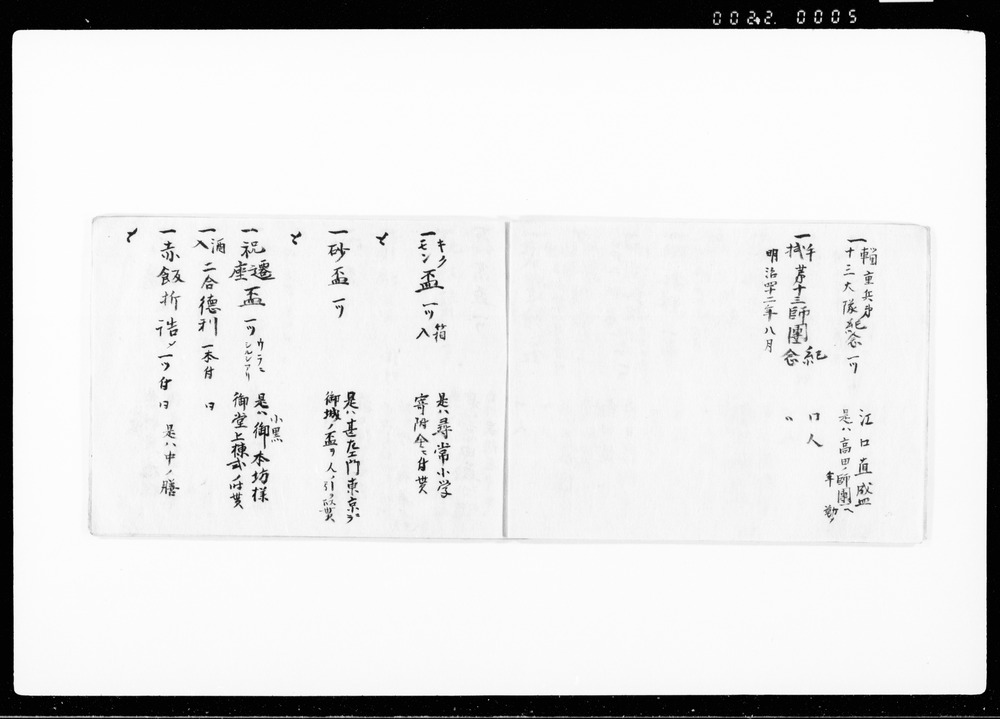 0022. 0005
一輜重兵第
十三大隊紀念 一ツ
江口直盛
是ハ高田ノ師團ヘ
年勤ノ
一拭第十三師團
紀念
明治四二年八月
〃 口人
一キクモン盃 一ツ 箱入
是ハ尋常小学
寄附金ニ付貰
一砂盃 一ツ
是ハ甚左エ門東京ヨ
御城ノ盃ヲ人ノ引
一遷座祝盃 一ツ ウラニシルシアリ
小黒
是ハ御本坊様
御堂上棟式ニ付貰
一酒入二合德利 一本付 〃
一赤飯折詰メ 一ツ付 〃
是ハ中ノ膳